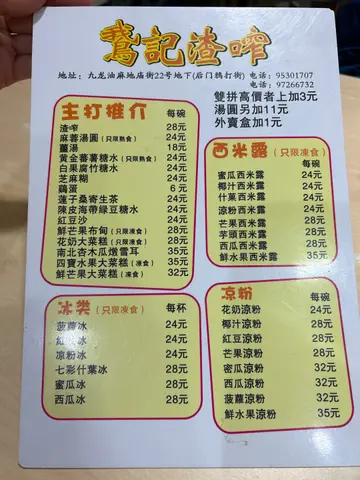 鵞記渣咋
地址: 九龙油麻地庙街22号地下(后门鸦打街) 电话: 95301707
电话: 97266732
雙拼高價者上加3元
湯圓另加11元
外賣盒加1元
主打推介 每碗
渣咋 28元
麻蓉湯圓(只限熱食) 24元
薑湯 18元
黄金蕃薯糖水 24元
白果腐竹糖水 24元
芝麻糊 24元
鷄蛋 6元
蓮子桑寄生茶 24元
陳皮海帶綠豆糖水 24元
紅豆沙 24元
鮮芒果布甸(只限凍食) 28元
花奶大菜糕(只限凍食) 28元
南北杏木瓜燉雪耳 35元
四寶水果大菜糕(凍食) 35元
鮮芒果大菜糕(凍食) 32元
西米露(只限凍食)
每碗
蜜瓜西米露 24元
椰汁西米露 24元
什菓西米露 24元
涼粉西米露 24元
芒果西米露 28元
芋頭西米露 28元
西瓜西米露 28元
鮮水果西米露 35元
冰类(只限凍食) 每杯
菠蘿冰 24元
紅豆冰 24元
涼粉冰 24元
七彩什葉冰 28元
蜜瓜冰 28元
西瓜冰 28元
凉粉(只限凍食)
每碗
花奶涼粉 24元
椰汁涼粉 28元
紅豆涼粉 28元
芒果涼粉 28元
蜜瓜涼粉 32元
西瓜涼粉 32元
菠蘿涼粉 32元
鮮水果涼粉 35元